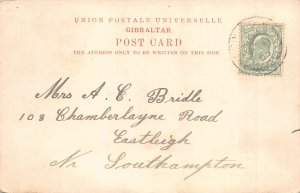 UNION POSTALE UNIVERSELLE
GIBRALTAR
POST CARD
THE ADDRESS ONLY TO BE WRITTEN ON THIS SIDE
Mrs A. C. Bridle
108 Chamberlayne Road
Eastleigh
Nr Southampton